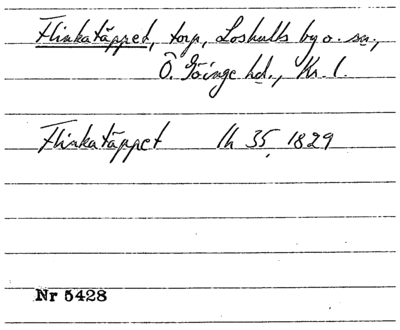 Flinkatäppet, torp, Loshults by o. sn.,
Ö. Göinge hd., Kr. l.
Flinkatäppet lh 35, 1829
Nr 5428